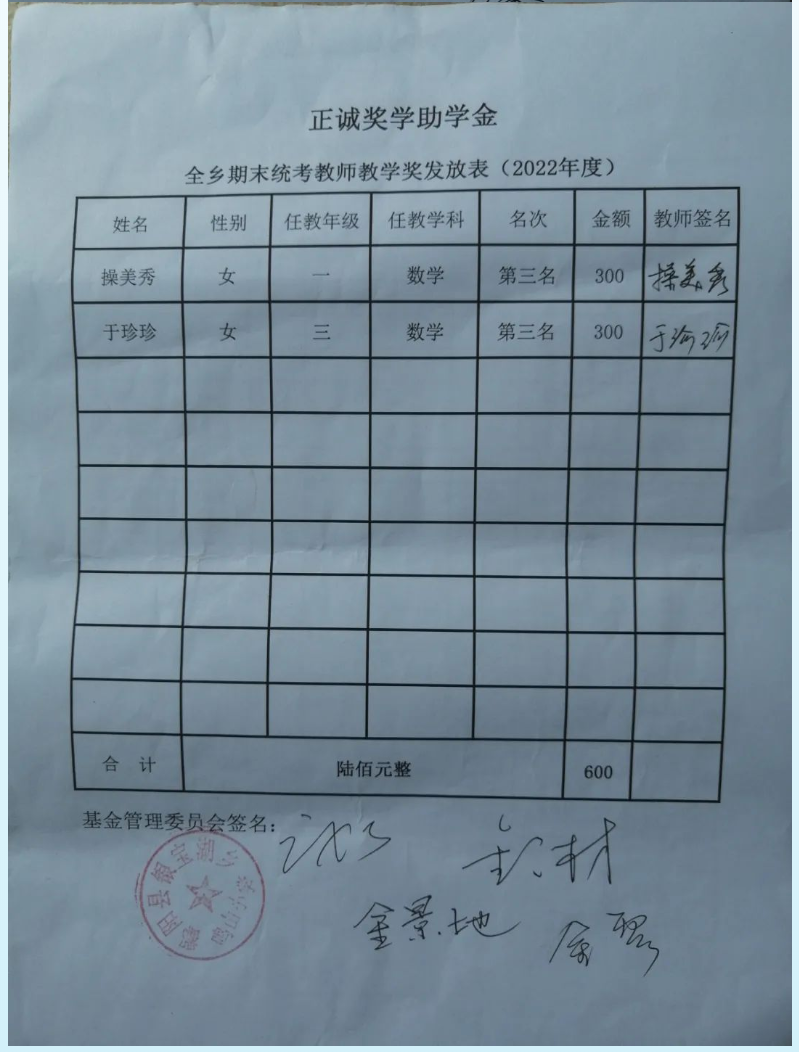 正诚奖学助学金
全乡期末统考教师教学奖发放表（2022年度）
姓名 性别 任教年级 任教学科 名次 金额 教师签名
操美秀 女 一 数学 第三名 300 操美秀
于珍珍 女 三 数学 第三名 300 于珍珍
合 计 陆佰元整 600
基金管理委员会签名：
金景地
鄱阳县银宝湖乡